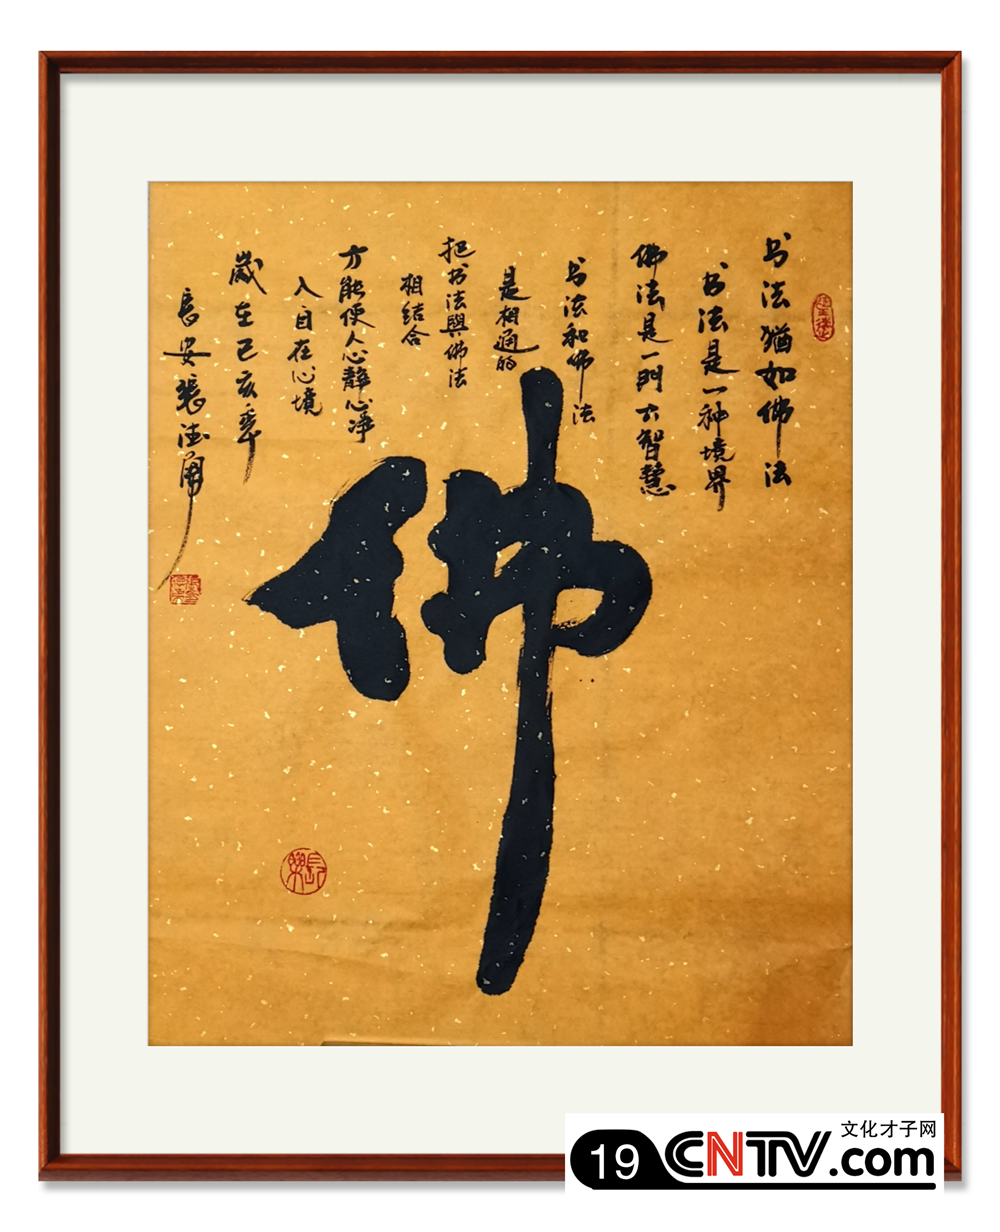 书法猶如佛法
书法是一种境界
佛法是一門大智慧
书法和佛法
是相通的
把书法與佛法
相结合
方能使人心静心净
入自在心境
歲在己亥年
長安張德勇
佛
長樂
19 CNTV.com
文化才子网